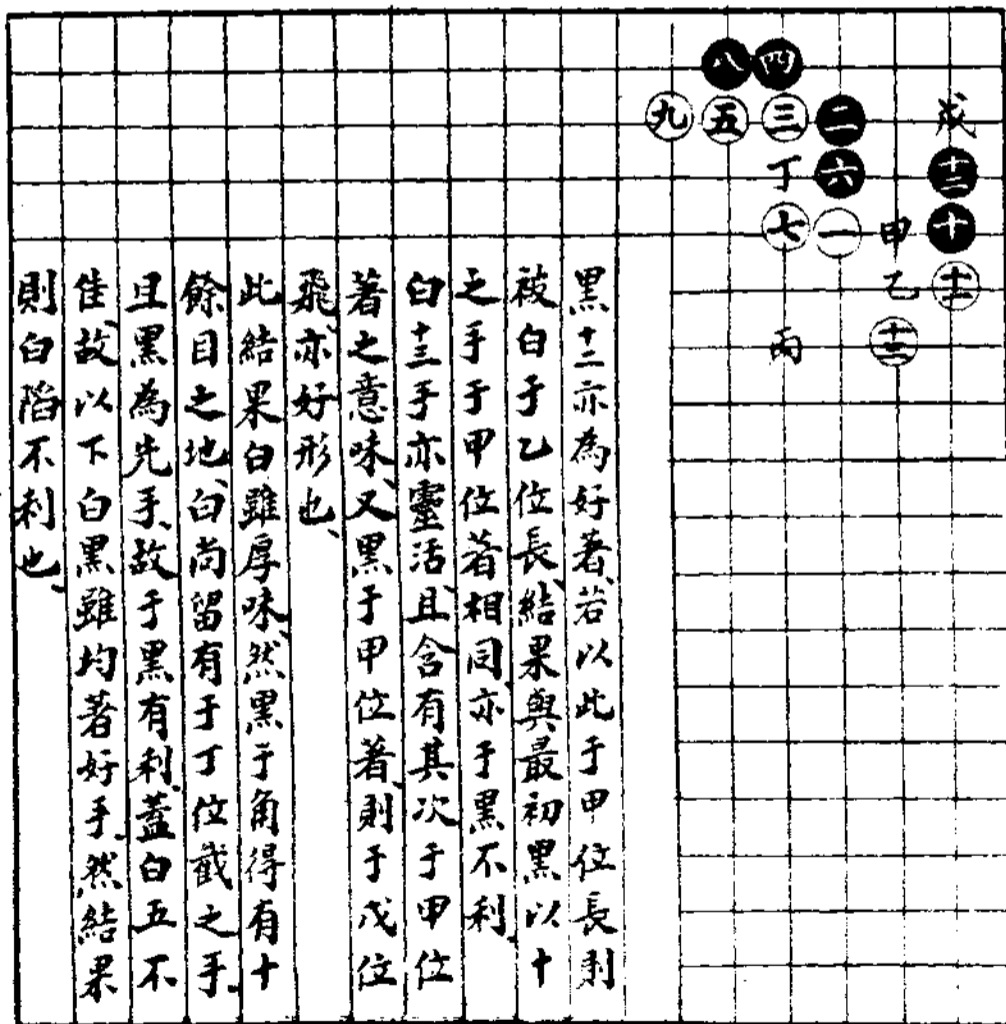 八四
九五三二戊
丁六十二
七一甲十
乙十一
丙十三
黑十二亦為好著、若以此于甲位長、則
被白于乙位長、結果與最初黑以十
之手于甲位著相同、亦于黑不利、
白十三手亦靈活、且含有其次于甲位
著之意味、又黑于甲位著、則于戊位
飛、亦好形也、
此結果白雖厚味、然黑于角得有十
餘目之地、白尚留有于丁位截之手、
且黑為先手、故于黑有利、蓋白五不
佳、故以下白黑雖均著好手、然結果
則白陷不利也、